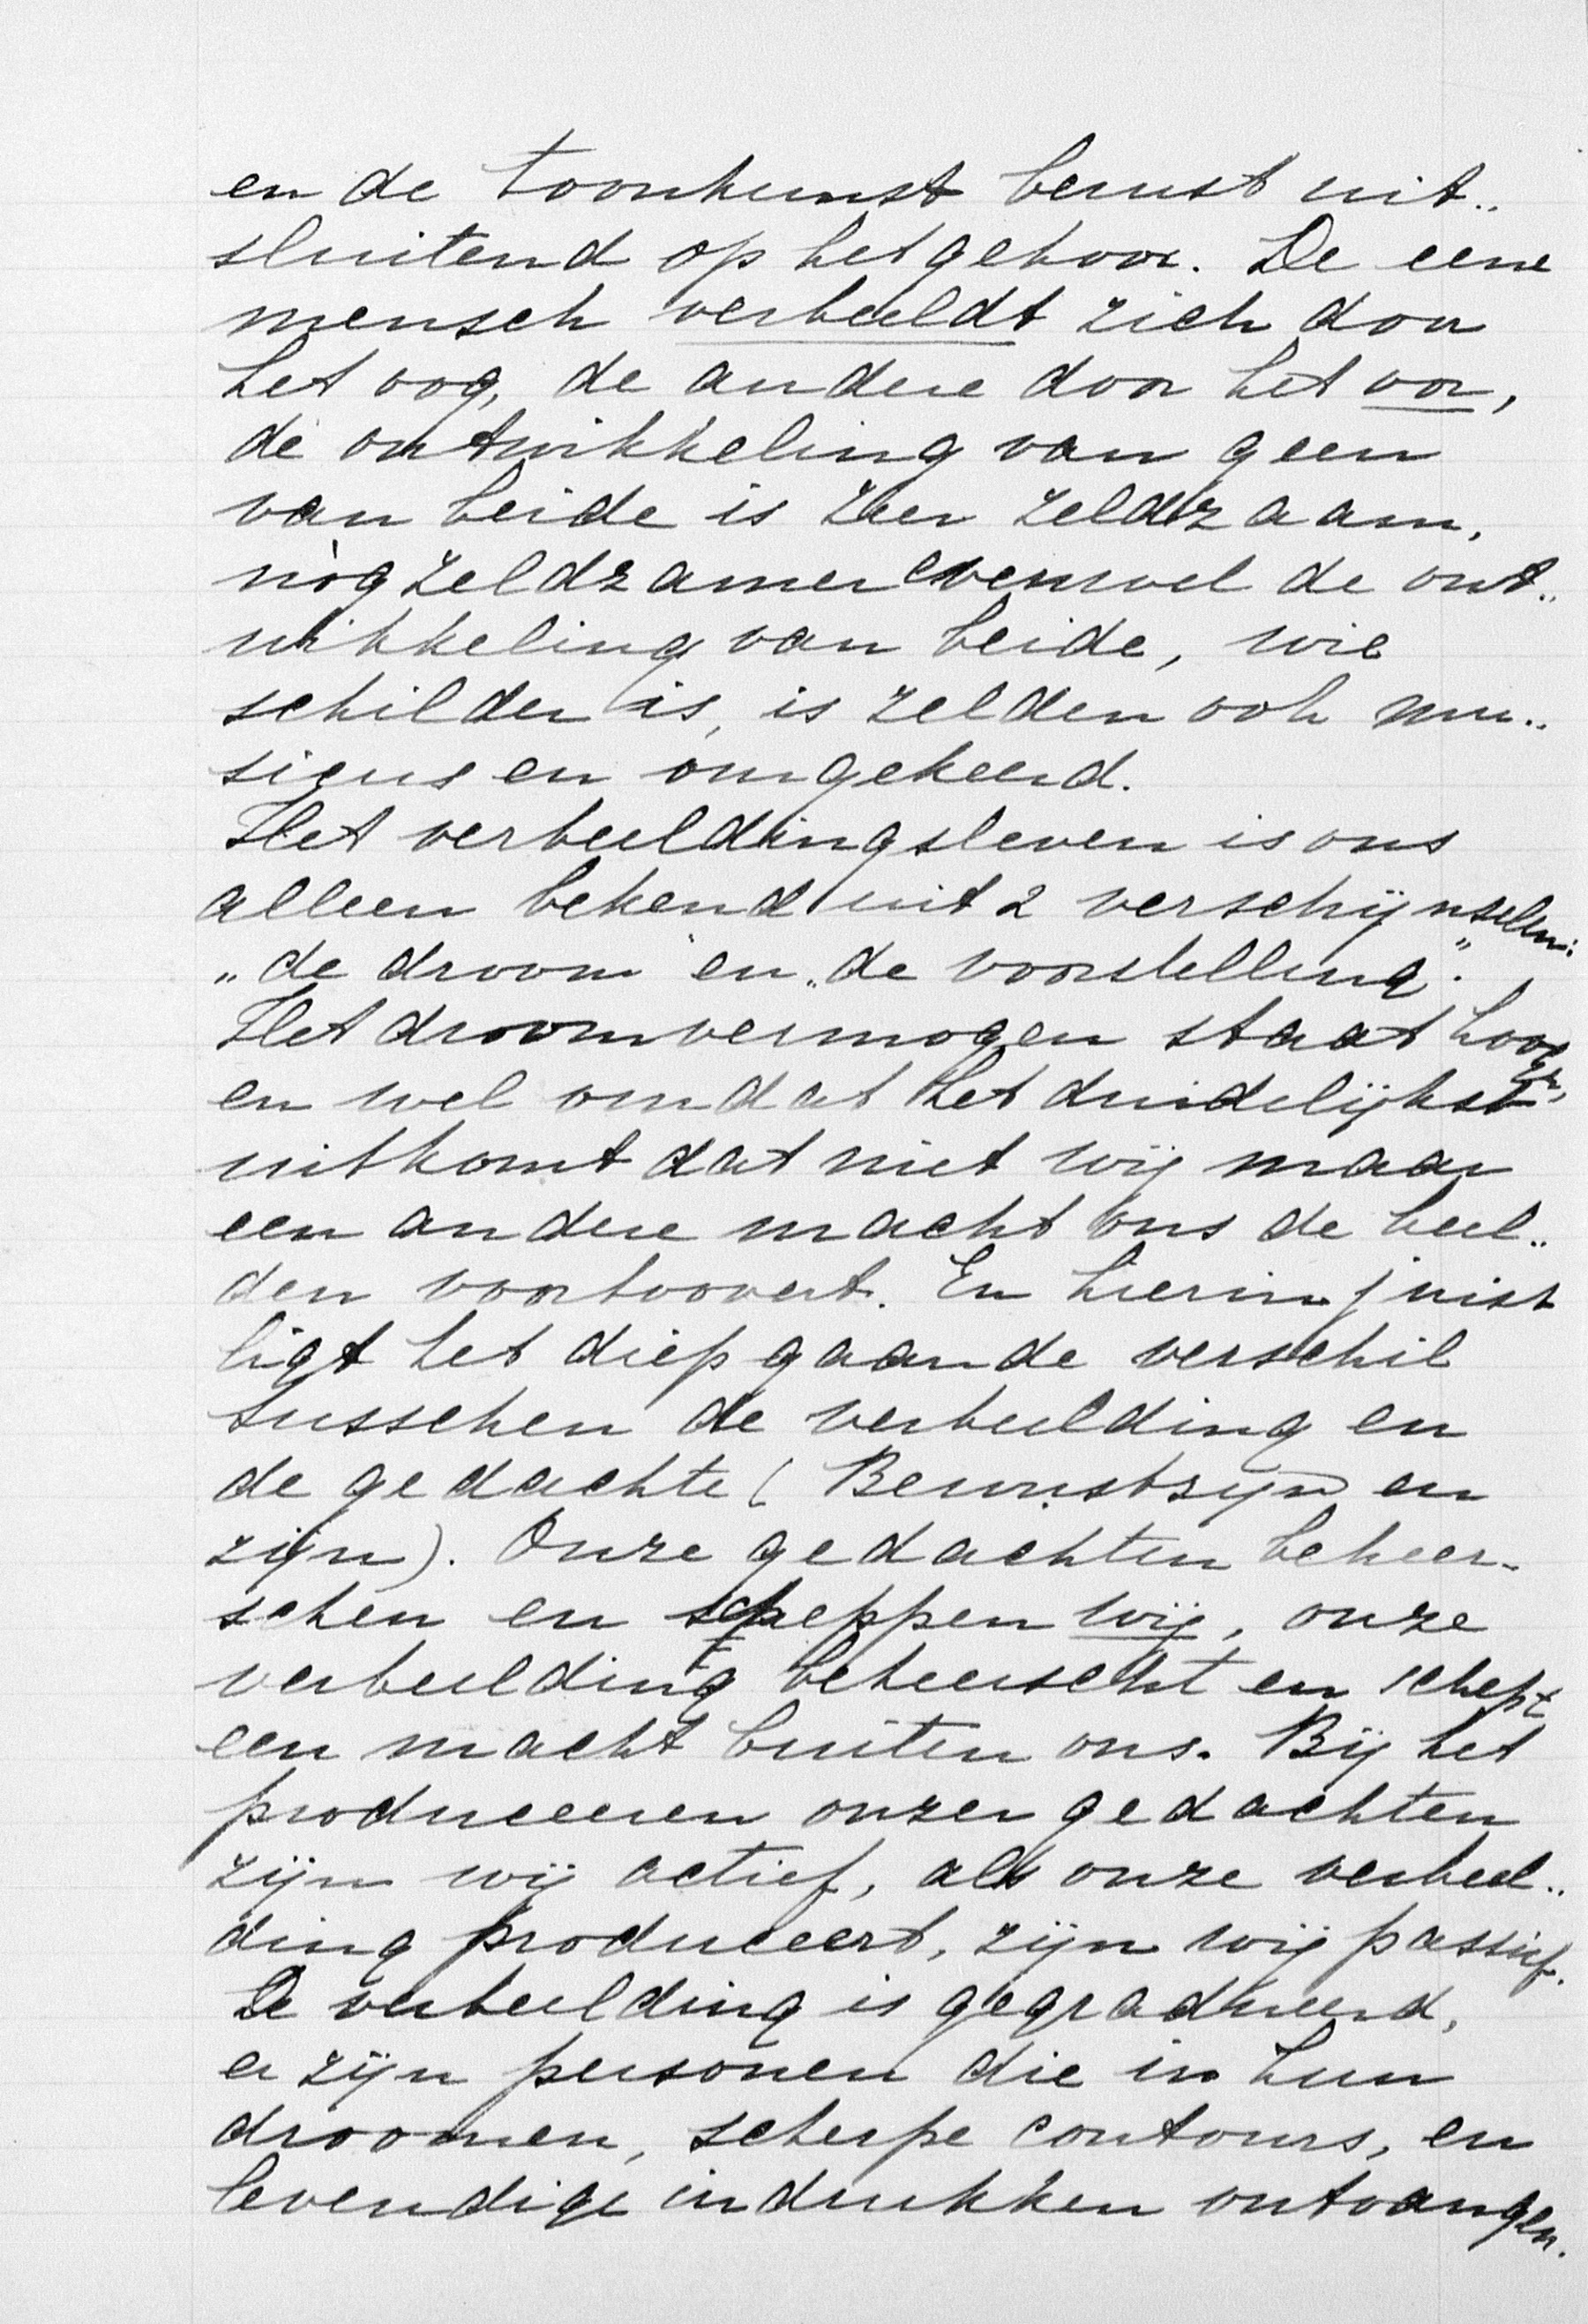 en de toonkunst berust uit..
sluitend op het gehoor. De eene
mensch verbeeldt zich door
het oog, de andere door het oor,
de ontwikkeling van geen
van beide is zeer zeldzaam,
nòg zeldzamer evenwel de ont..
wikkeling van beide, wie
schilder is, is zelden ook mu..
sicus en omgekeerd.
Het verbeeldingsleven is ons
alleen bekend uit 2 verschijnselen:
„de droom" en „de voorstelling".
Het droomvermogen staat hooger,
en wel omdat het duidelijkst
uitkomt dat niet wij maar
een andere macht ons de beel..
den voortoovert. En hierin juist
ligt het diepgaande verschil
tusschen de verbeelding en
de gedachte (Bewustzijn en
zijn). Onze gedachten beheer-
schen en scheppen wij, onze
verbeelding beheerscht en schept
een macht buiten ons. Bij het
produceeren onzer gedachten
zijn wij actief, als onze verbeel..
ding produceert, zijn wij passief.
De verbeelding is gegradueerd,
er zijn personen die in hun
droomen, scherpe contours, en
levendige indrukken ontvangen.